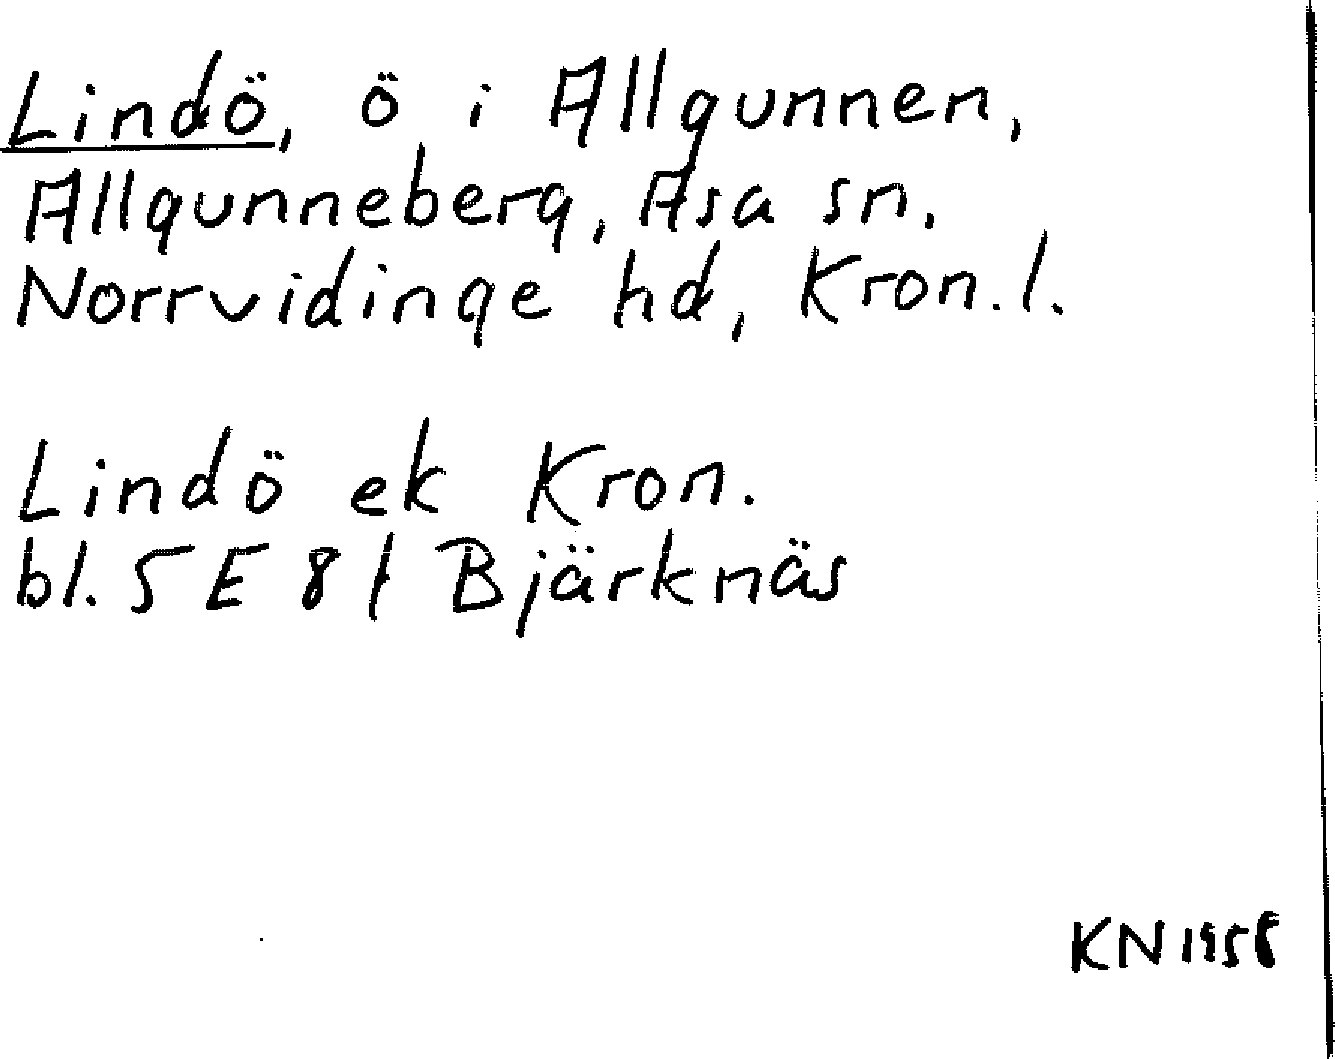 Lindö, ö i Allgunnen,
Allgunneberg, Asa sn.
Norrvidinge hd, Kron.l.
Lindö ek Kron.
bl. 5 E 8 f Bjärknäs
KN 1958